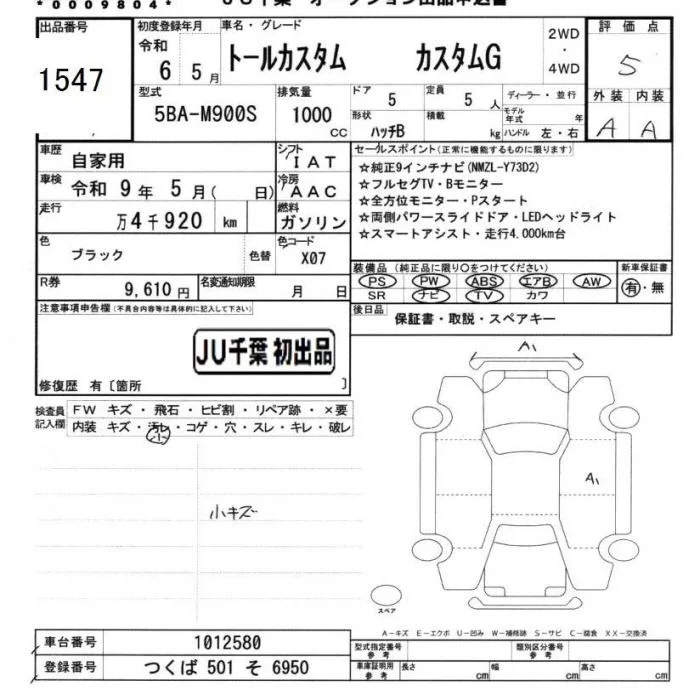 *0009804*
JU千葉 オークション出品申込書
出品番号
1547
初度登録年月
令和
6 5月
車名・グレード
トールカスタム カスタムG
2WD
・
4WD
評価点
5
外装 内装
A A
型式
5BA-M900S
排気量
1000
CC
ドア
5
定員
5人
ディーラー・並行
形状
ハッチB
積載
kg
モデル年式 年
ハンドル 左・右
車歴
自家用
シフト
IAT
車検
令和 9年 5月( 日)
冷房
AAC
走行
万4千920 km
燃料
ガソリン
色
ブラック
色替
色コード
X07
R券
9,610円
名変通知期限
月 日
セールスポイント(正常に機能するものに限ります)
☆純正9インチナビ(NMZL-Y73D2)
☆フルセグTV・Bモニター
☆全方位モニター・Pスタート
☆両側パワースライドドア・LEDヘッドライト
☆スマートアシスト・走行4.000km台
装備品(純正品に限り○をつけてください)
PS PW ABS エアB AW
SR ナビ TV カワ
新車保証書
有・無
後日品
保証書・取説・スペアキー
注意事項申告欄(不具合内容等は具体的に記入して下さい)
JU千葉 初出品
修復歴 有〔箇所 〕
検査員
記入欄
FW キズ・飛石・ヒビ割・リペア跡・×要
内装 キズ・汚レ・コゲ・穴・スレ・キレ・破レ
小
小キズ
A1
A1
スペア
A-キズ E-エクボ U-凹み W-補修跡 S-サビ C-腐食 XX-交換済
車台番号
1012580
登録番号
つくば 501 そ 6950
型式指定番号
参考
類別区分番号
参考
車庫証明用
参考
長さ cm
幅 cm
高さ cm